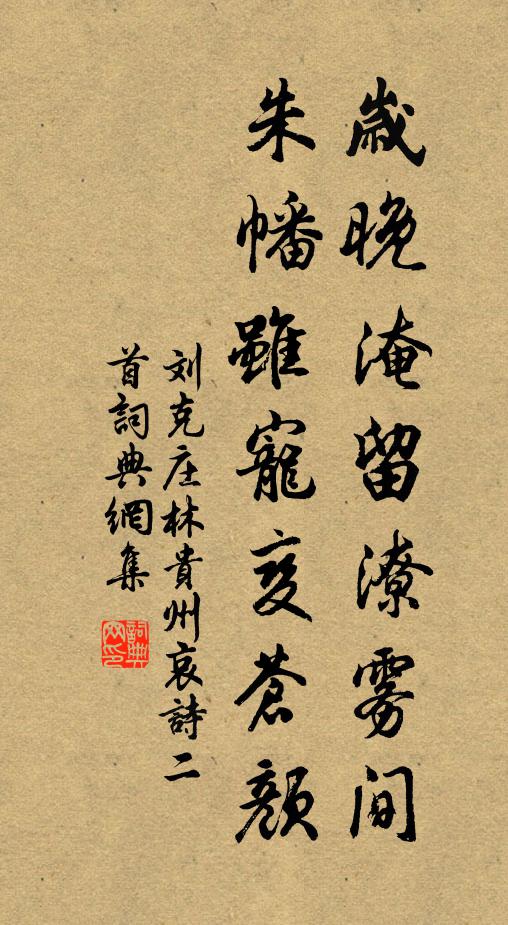 歲晚淹留潦雾间
朱幡雖寵变蒼顏
刘克庄林貴州哀詩二
首詞典網集
詞典
网印